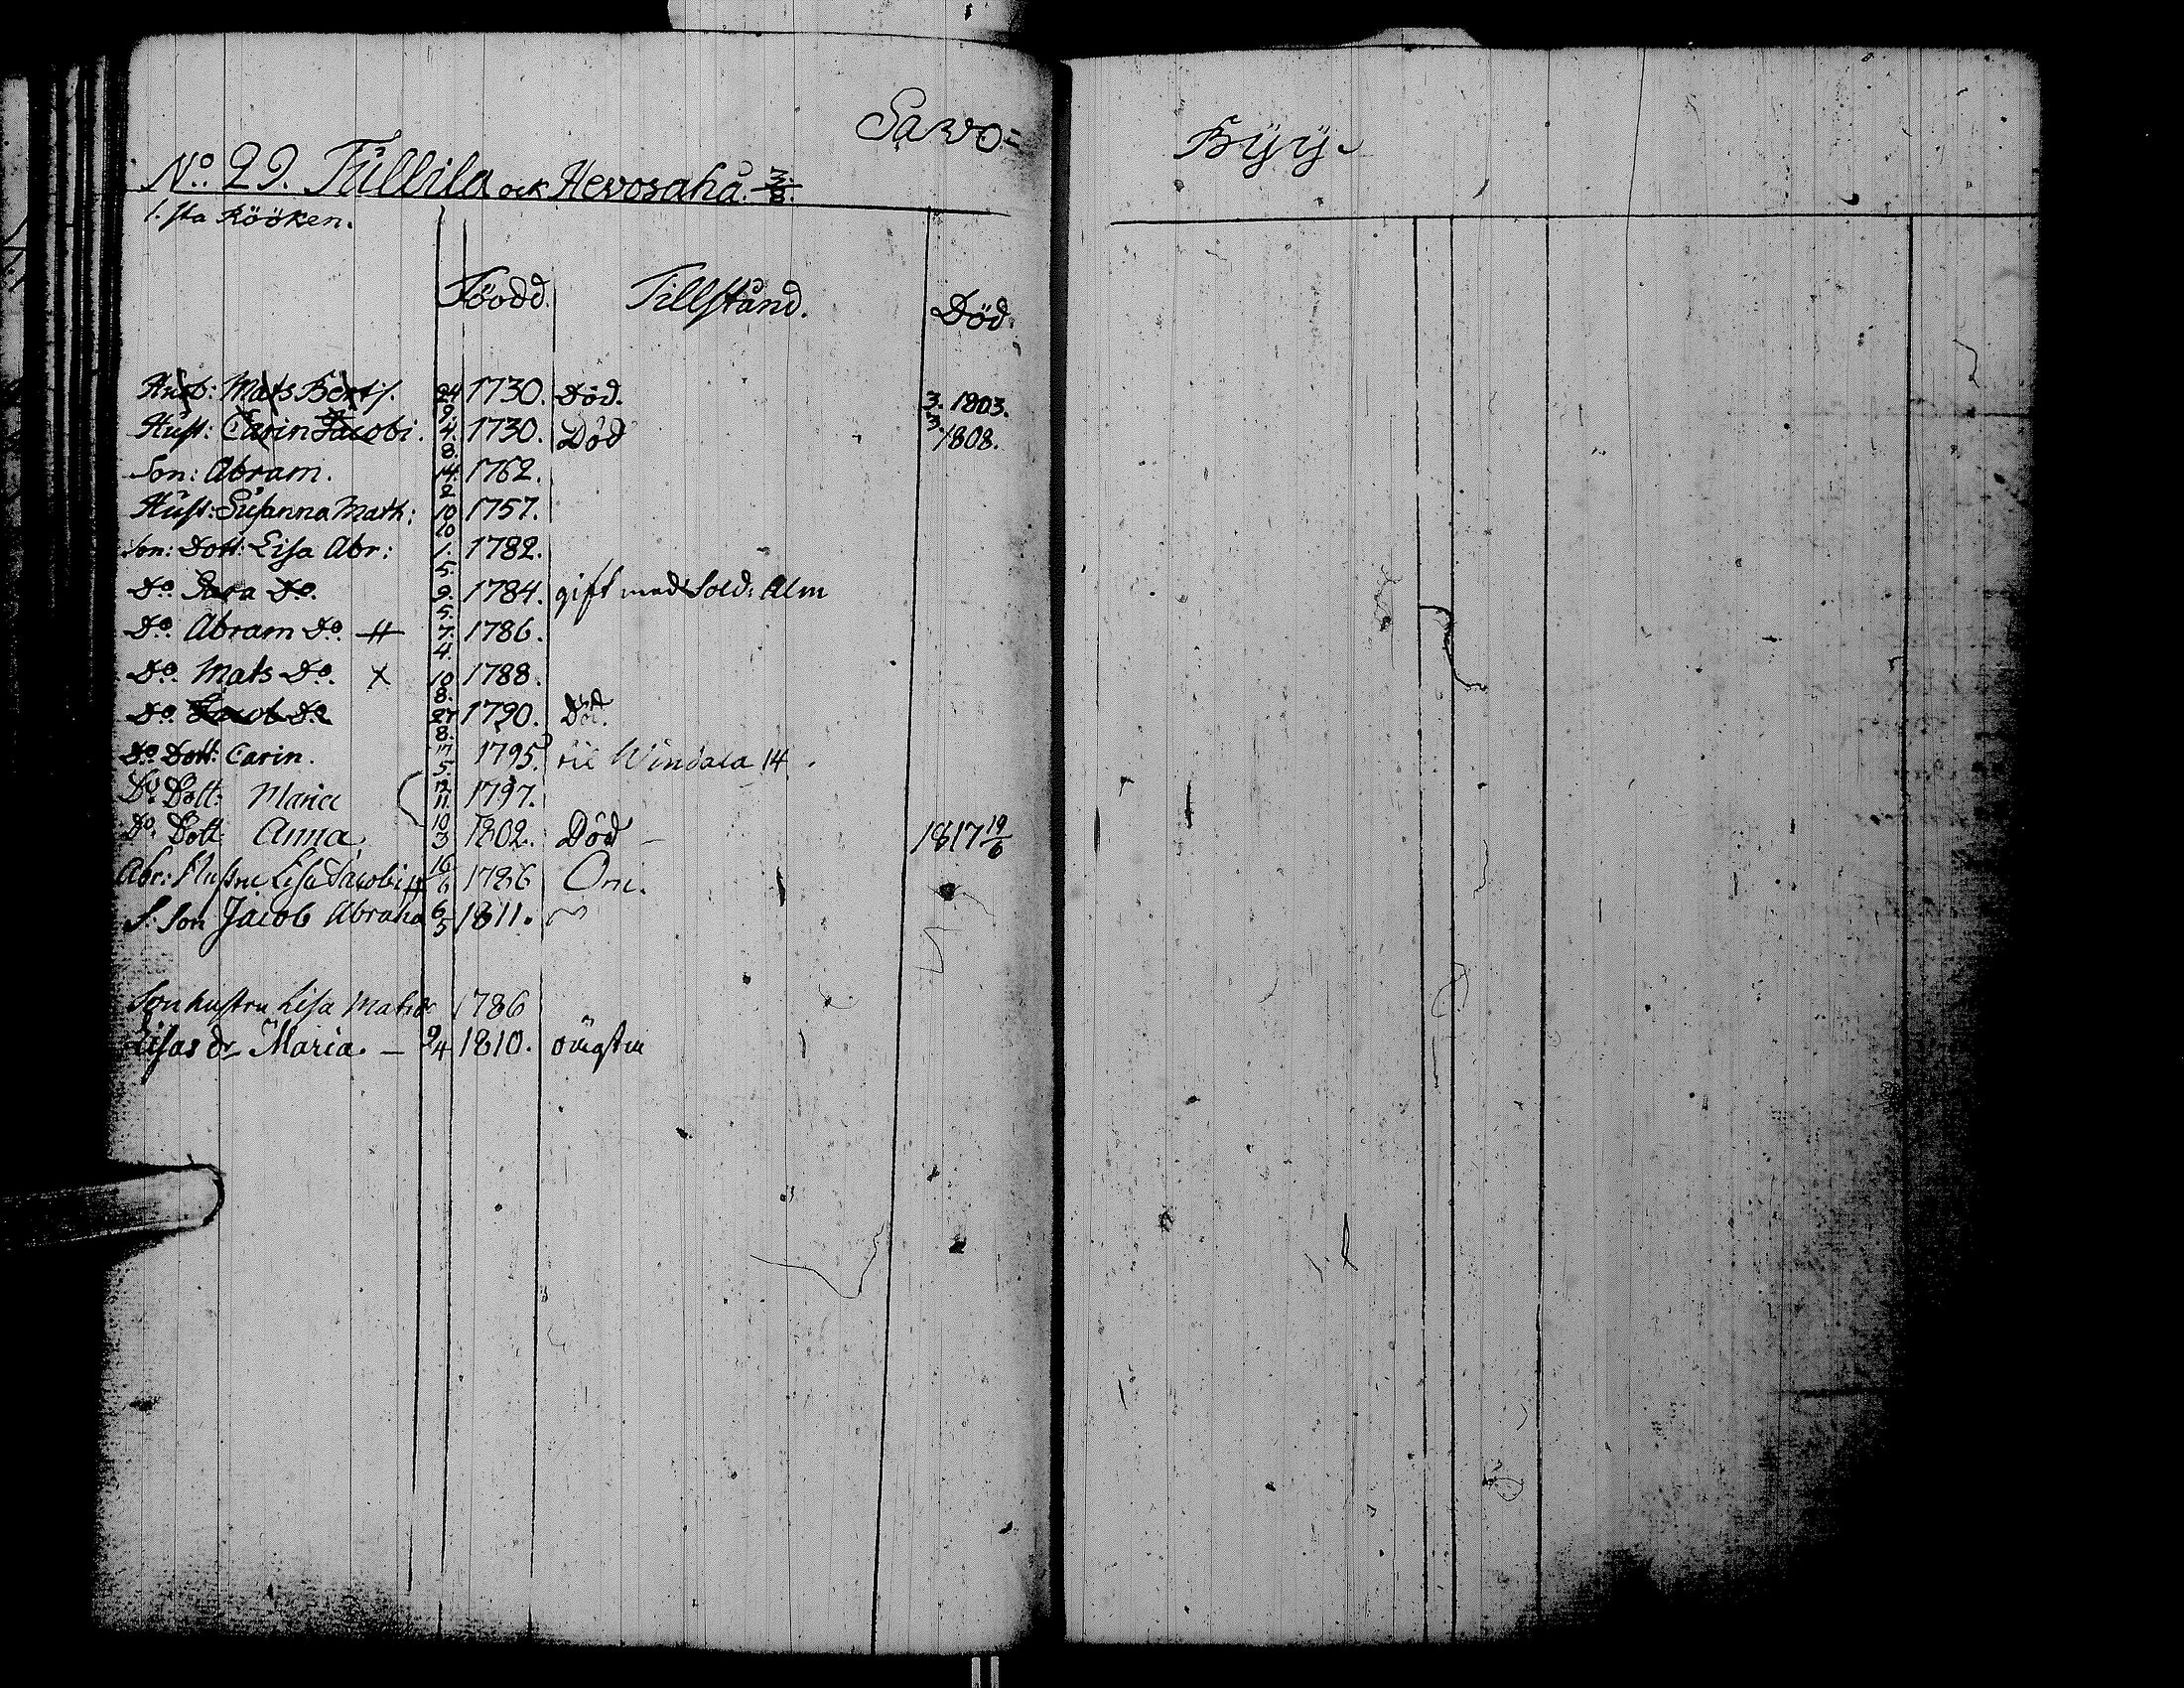 Sawo=
Byy.
No. 29. Tullila ock Hevosaha. 3/8.
1. sta Rööken.
Föodd. Tillstånd. Död.
Husb: Mats Bertj. 24/9. 1730. Död. 3. 1803.
Hust: Carin Jacobi. 4./8. 1730. Död 3. 1808.
Son: Abram. 14./2 1762.
Hust: Susanna Math: 10/10 1757.
Son: Dott: Lisa Abr: 1./5. 1782.
Do. Sara Do. 9./5. 1784. gift med Sold: Alm
Do. Abram Do. # 7./4. 1786.
Do. Mats Do. X 10/8. 1788.
Do. Jacob Do 27/8. 1790. Död.
Do. Dott: Carin. 17/5. 1795. til Windala 14.
Do. Dott: Maria 12/11. 1797.
Do. Dott Anna 10/3 1802. Död — 1817 19/6
Abr: Hustru Lisa Jacobi # 16/6 1786
S. Son Jacob Abraha 6/5 1811.
Sonhustru Lisa Matsdr 1786
Lisas dr Maria. — 9/4 1810.